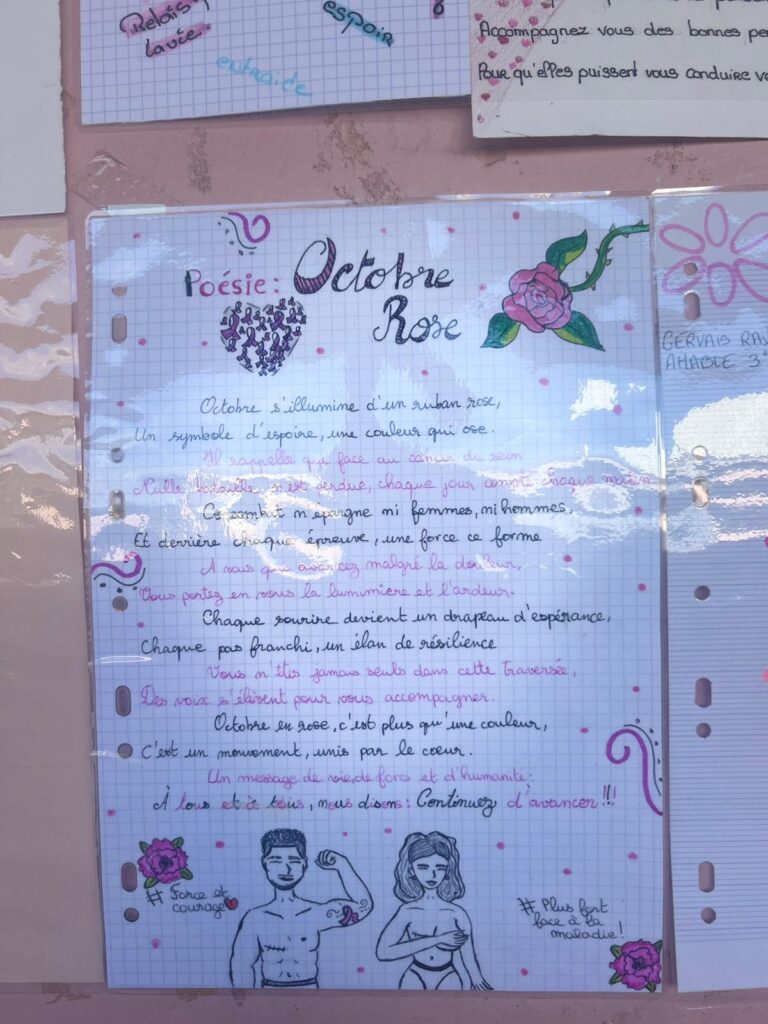 Relais
la vie.
espoir
entraide
Accompagnez vous des bonnes pe
Pour qu'elles puissent vous conduire ve
Poésie: Octobre
Rose
Octobre s'illumine d'un ruban rose,
Un symbole d'espoire, une couleur qui ose.
Il rappelle que face au cancer du sein
Nulle bataille n'est perdue, chaque jour compte chaque matin
Ce combat n'épargne ni femmes, ni hommes,
Et derrière chaque épreuve, une force ce forme
A vous qui avancez malgré la douleur,
Vous portez en vous la lumimière et l'ardeur.
Chaque sourire devient un drapeau d'espérance,
Chaque pas franchi, un élan de résilience
Vous n'êtes jamais seuls dans cette traversée,
Des voix s'élèvent pour vous accompagner.
Octobre en rose, c'est plus qu'une couleur,
C'est un mouvement, unis par le coeur.
Un message de vie, de force et d'humanité:
À tous et à tous, nous disons: Continuez d'avancer!!!
# Force et
courage
# Plus fort
face à la
maladie!
GERVAIS RAV
AMABLE 3°